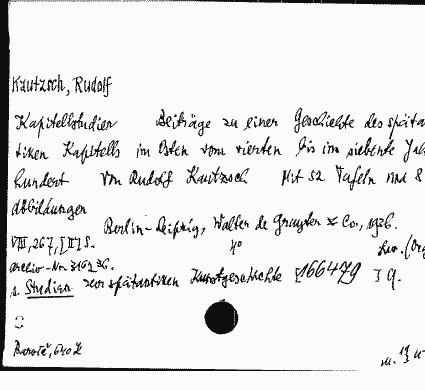 Kautzsch, Rudolf
Kapitellstudien Beiträge zu einer Geschichte des spätan
tiken Kapitells im Osten vom vierten bis im siebente Jahr
hundert Von Rudolf Kautzsch Mit 52 Tafeln und 8
Abbildungen
Berlin-Leipzig, Walter de Gruyter & Co., 1936.
VIII, 267, [II] S. 4°
Archiv-Nr. 3162 36.
s. Studien zur spätantiken Kunstgeschichte [166479] 9.